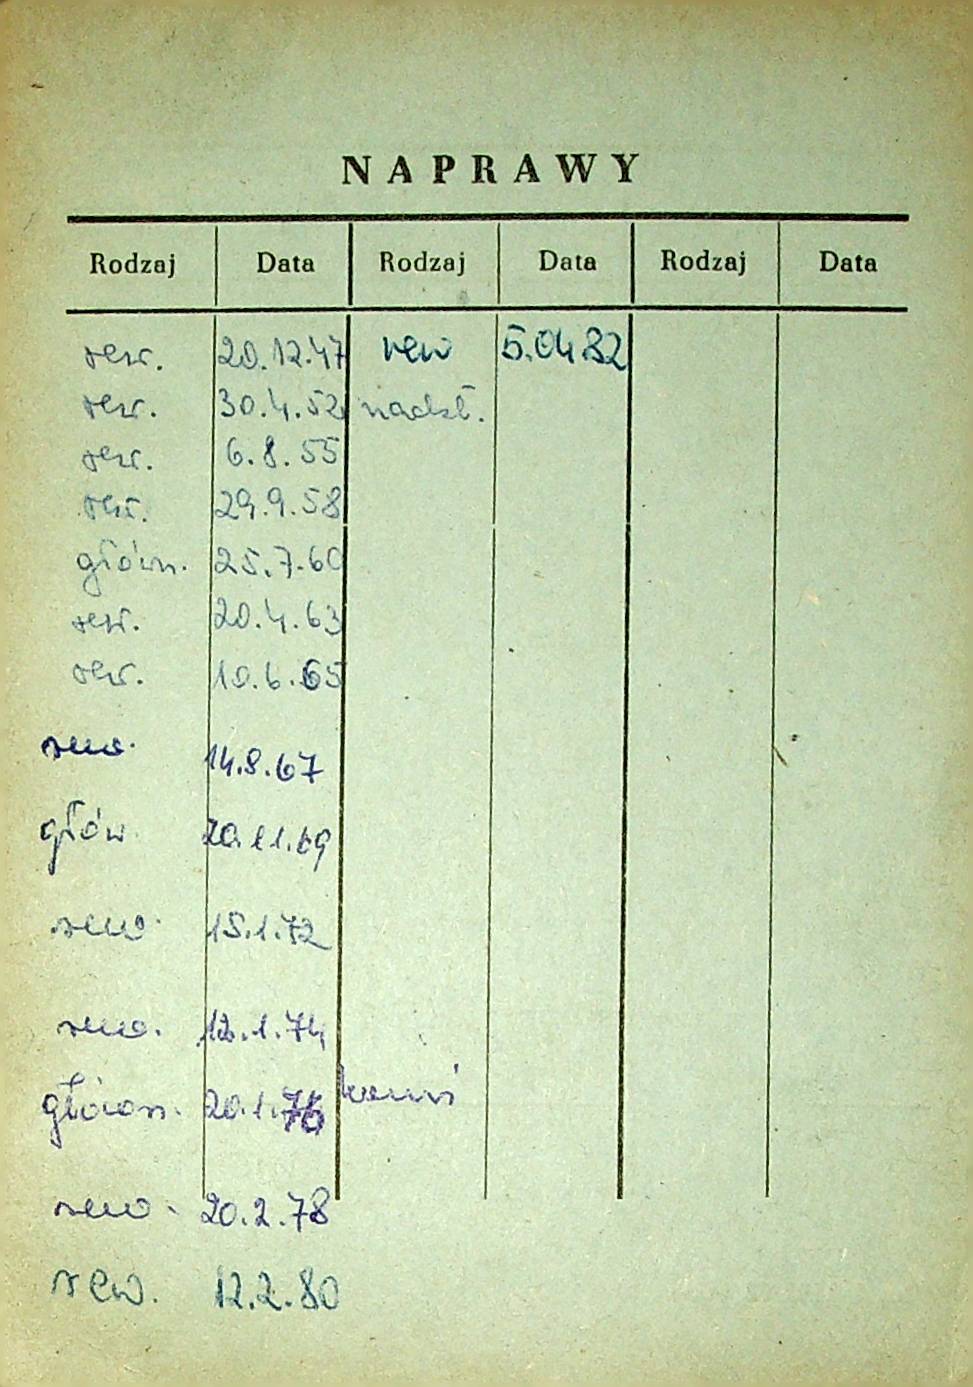 NAPRAWY
Rodzaj Data Rodzaj Data Rodzaj Data
rew. 20.12.47 rew 5.04 82
rew. 30.4.52
rew. 6.8.55
rew. 29.9.58
główn. 25.7.60
rew. 20.4.63
rew. 10.6.65
rew. 14.8.67
głów 20.11.69
rew. 15.1.72
rew. 12.1.74
główn. 20.1.76
rew. 20.2.78
rew. 12.2.80